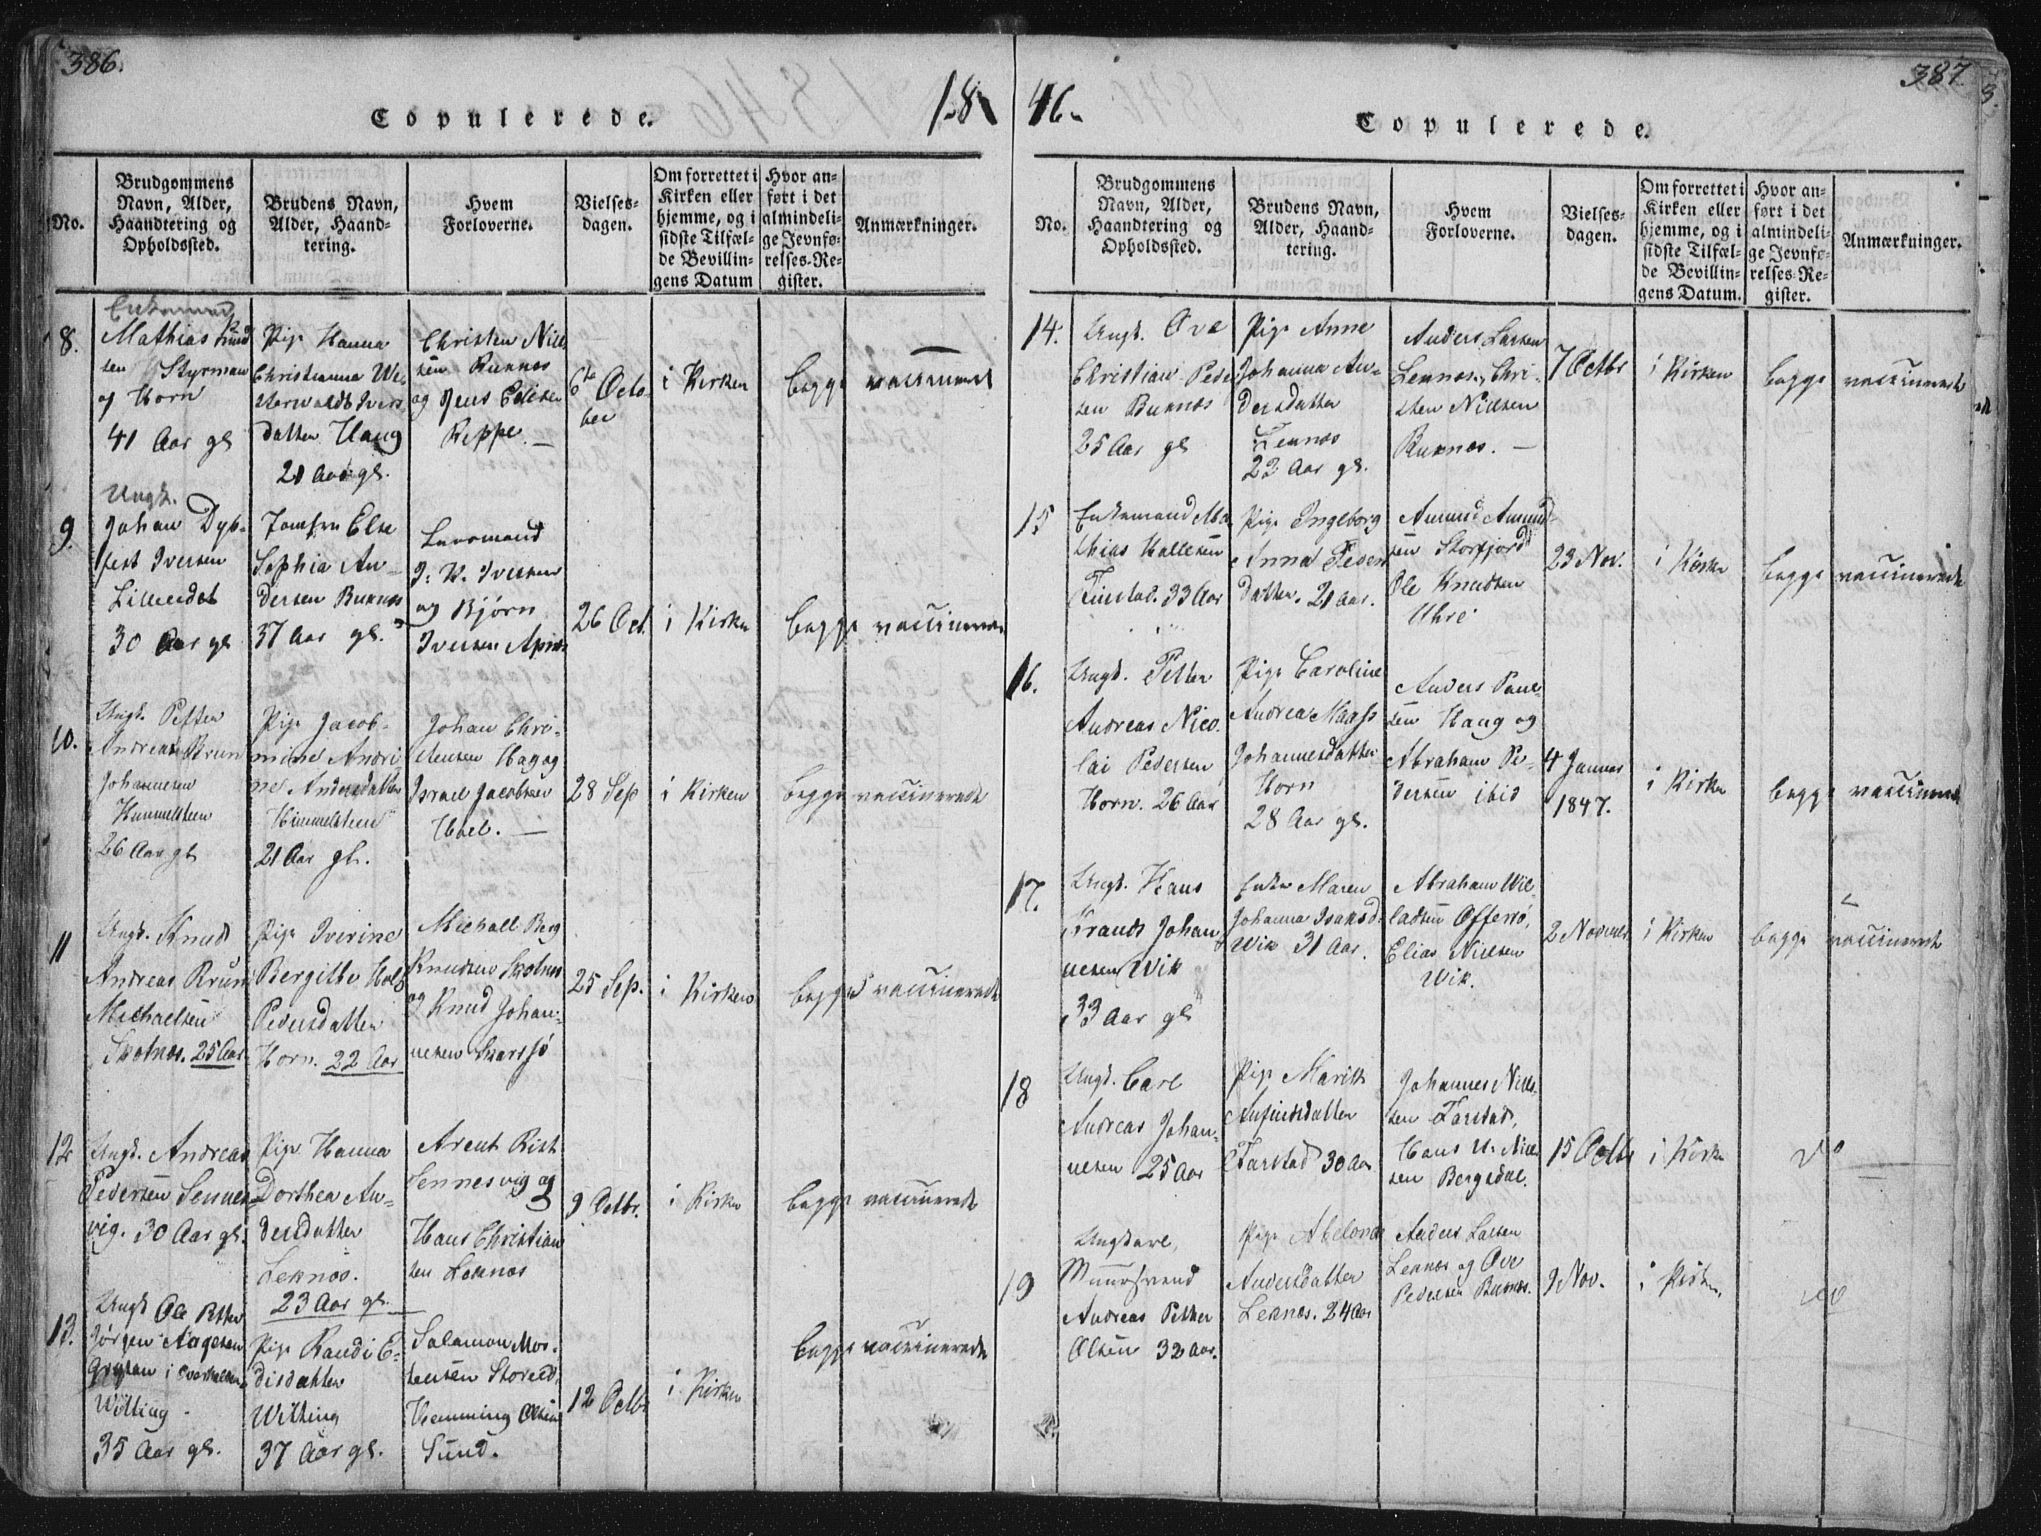 386.
1846.
387.
Copulerede.
Copulerede.
No.
Brudgommens
Navn, Alder,
Haandtering og
Opholdssted.
Brudens Navn,
Alder, Haand-
tering.
Hvem
Forloverne.
Vielses-
dagen.
Om forrettet i
Kirken eller
hjemme, og i
sidste Tilfæl-
de Bevillin-
gens Datum
Hvor an-
ført i det
almindeli-
ge Jevnfø-
relses-Re-
gister.
Anmærkninger.
8.
Enkemand
Mathias Knud
sen Styrman
og Horn
41 Aar gl
Pige Hanna
Christianna We-
sterwaldt Ivers
datter Haug
21 Aar gl.
Christen Niel
sen Buxnes
og Jens
Reppe. —
6te Octo-
ber
i Kirken
begge vaccineret
9.
Ungk.
Johan Dyb-
fest Iversen
Lilleeidet
30 Aar gl
Jomfru Else
Sophia An-
dersen Buxnes
37 Aar gl.
Iversen
og Bjørn
Iversen
26 Oct.
i Kirken
begge vaccinerede
10.
Ungk. Petter
Andreas Brun
Johannesen
Himmelsteen
26 Aar gl
Pige Jacob-
mine Andri-
ne Andersdatter
Himmelsteen
21 Aar gl.
Johan Chri-
stensen Hag og
Israel Jacobsen
Hoel. —
28 Sep
i Kirken
begge vaccinerede
11
Ungk. Knud
Andreas Bruun
Michaelsen
Skotnæs. 25 Aar
Pige Iverine
Bergitte Holst
Pedersdatter
Horn. 22 Aar
Michael Berg
Knudsen Skotnes
og Knud Johan-
nesen Skarsjø
25 Sep.
i Kirken
begge vaccinerede
12
Ungk. Andreas
Pedersen Sennes-
vig. 30 Aar gl.
Pige Hanna
Dorthea An-
dersdatter
Leknæs.
23 Aar gl.
Arent Rist
Sennesvig og
Hans Christian
sen Leknæs
9 Octbr.
i Kirken
begge vaccinerede
13.
Ungk Ole Petter
Jørgen Aagesen
i
Witting
35 Aar gl.
Pige Randi E-
disdatter
Witting
37 Aar gl.
Salamon Mor-
tensen Storeid,
Hemming Olsen
Sund.
12 Octbr
i Kirken
begge vaccinerede
No.
Brudgommens
Navn, Alder,
Haandtering og
Opholdssted.
Brudens Navn,
Alder, Haand-
tering.
Hvem
Forloverne.
Vielses-
dagen.
Om forrettet i
Kirken eller
hjemme, og i
sidste Tilfæl-
de Bevillin-
gens Datum.
Hvor an-
ført i det
almindeli-
ge Jevnfø-
relses-Re-
gister.
Anmærkninger.
14.
Ungk. Ove
Christian Peder
sen Buxnæs
25 Aar gl
Pige Anne
Johanna An-
dersdatter
Leknæs
22 Aar gl.
Anders Larsen
Leknæs, Chri-
sten Nielsen
Buxnæs. —
7 Octbr
i Kirken
begge vaccinerede
15
Enkemand Ma-
thias Hallesen
Finstad. 33 Aar
Pige Ingeborg
Anna Peders
datter. 21 Aar.
Amund Amund-
sen Storfjord
Ole Knudsen
Uhre
23 Nov.
i Kirken
begge vaccinerede
16.
Ungk. Petter
Andreas Nico-
lai Pedersen
Horn. 26 Aar
Pige Caroline
Andrea Maass
Johannesdatter
Horn
28 Aar gl.
Anders Paul-
sen Haug og
Abraham Pe-
dersen ibid
4 Januar
1847.
i Kirken
begge vaccinerede
17.
Ungk. Hans
Krands Johan-
nesen Wik
33 Aar gl
Enke Maren
Johanna Isaksd.
Wik 31 Aar.
Abraham Wil-
ladsen Offersø,
Elias Nielsen
Wik.
2 November
i Kirken
begge vaccinerede
18
Ungk. Carl
Andreas Johan-
nesen 25 Aar
Pige Marith
Anfindsdatter
Farstad 30 Aar
Johannes Niels
sen Farstad,
Hans N. Niel
sen Bergsdal.
15 Octbr
i Kirken
do
19
Ungkarl,
Andreas Petter
Olsen 32 Aar.
Pige Abelone
Andersdatter
Leknæs. 24 Aar
Anders Larsen
Leknæs og Ove
Pedersen Buxnæs.
9 Nov.
i Kirken.
do